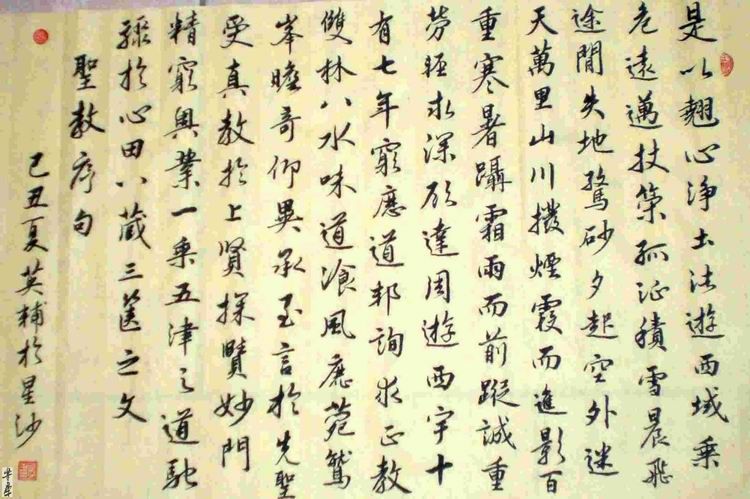 是以翹心淨土法遊西域乘
危遠邁杖策孤征積雪晨飛
途閒失地驚砂夕起空外迷
天萬里山川撥煙霞而進影百
重寒暑躡霜雨而前蹤誠重
劳輕求深願達周遊西宇十
有七年窮歷道邦詢求正教
雙林八水味道湌風鹿菀鷲
峯瞻奇仰異承至言於先聖
受真教於上賢探賾妙門
精窮奧業一乘五津之道馳
驟於心田八藏三篋之文
聖教序句
己丑夏英輔於星沙